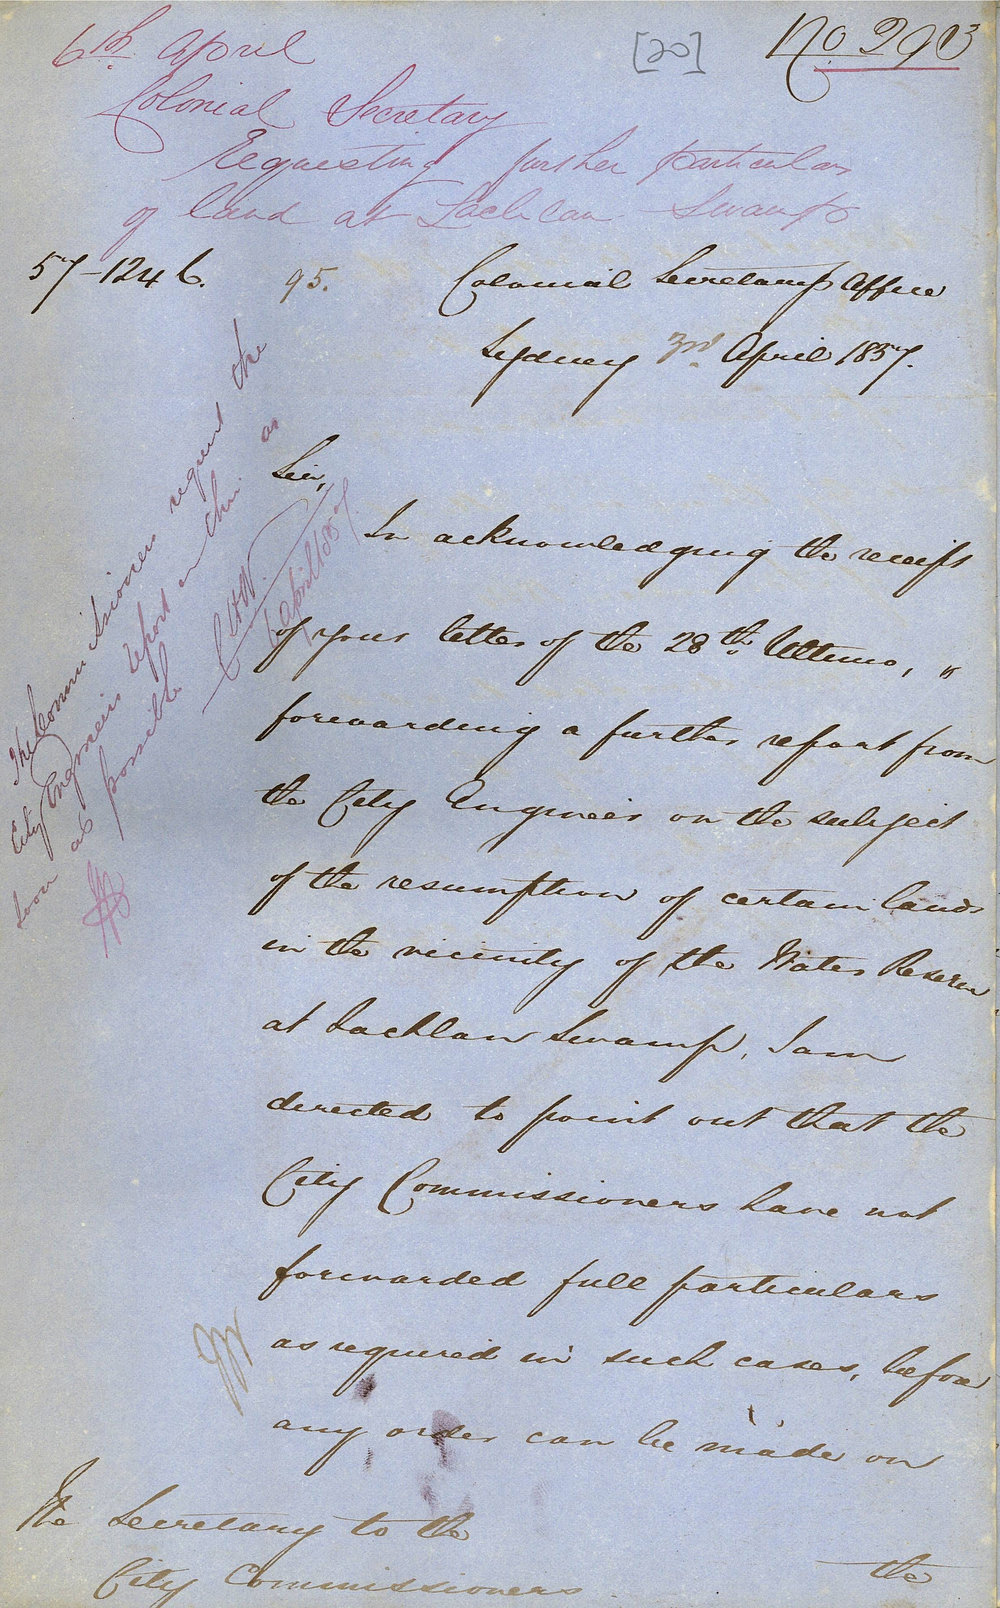 6th April
[20]
No 293
Colonial Secretary
Requesting further particulars
of land at Lachlan Swamp
57-1246.
95.
Colonial Secretarys Office
Sydney 3rd April 1857.
The Commissioners request the
City Engineers report on this as
soon as possible
April 1857
Sir,
In acknowledging the receipt
of your letter of the 28th Ultimo, "
forwarding a further report from
the City Engineer on the subject
of the resumption of certain lands
in the vicinity of the Water Reserve
at Lachlan Swamp, I am
directed to point out that the
City Commissioners have not
forwarded full particulars
as required in such cases, before
any order can be made on
The Secretary to the
City Commissioners
the